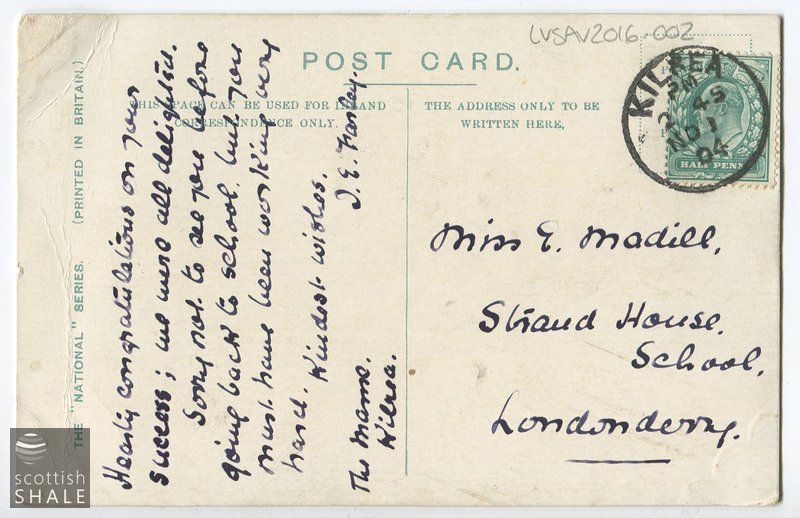 LVSAV2016-002
POST CARD.
THIS SPACE CAN BE USED FOR INLAND
CORRESPONDENCE ONLY.
THE ADDRESS ONLY TO BE
WRITTEN HERE,
KILREA
PM
2 45
NO 1
04
HALF PENNY
Miss E. Madill,
Strand House.
School,
Londonderry.
Hearty congratulations on your
success; we were all delighted.
Sorry not to see you before
going back to school, but you
must have been working very
hard.
Kindest wishes.
The Manse.
Kilrea.
THE "NATIONAL" SERIES. (PRINTED IN BRITAIN.)
scottish
SHALE